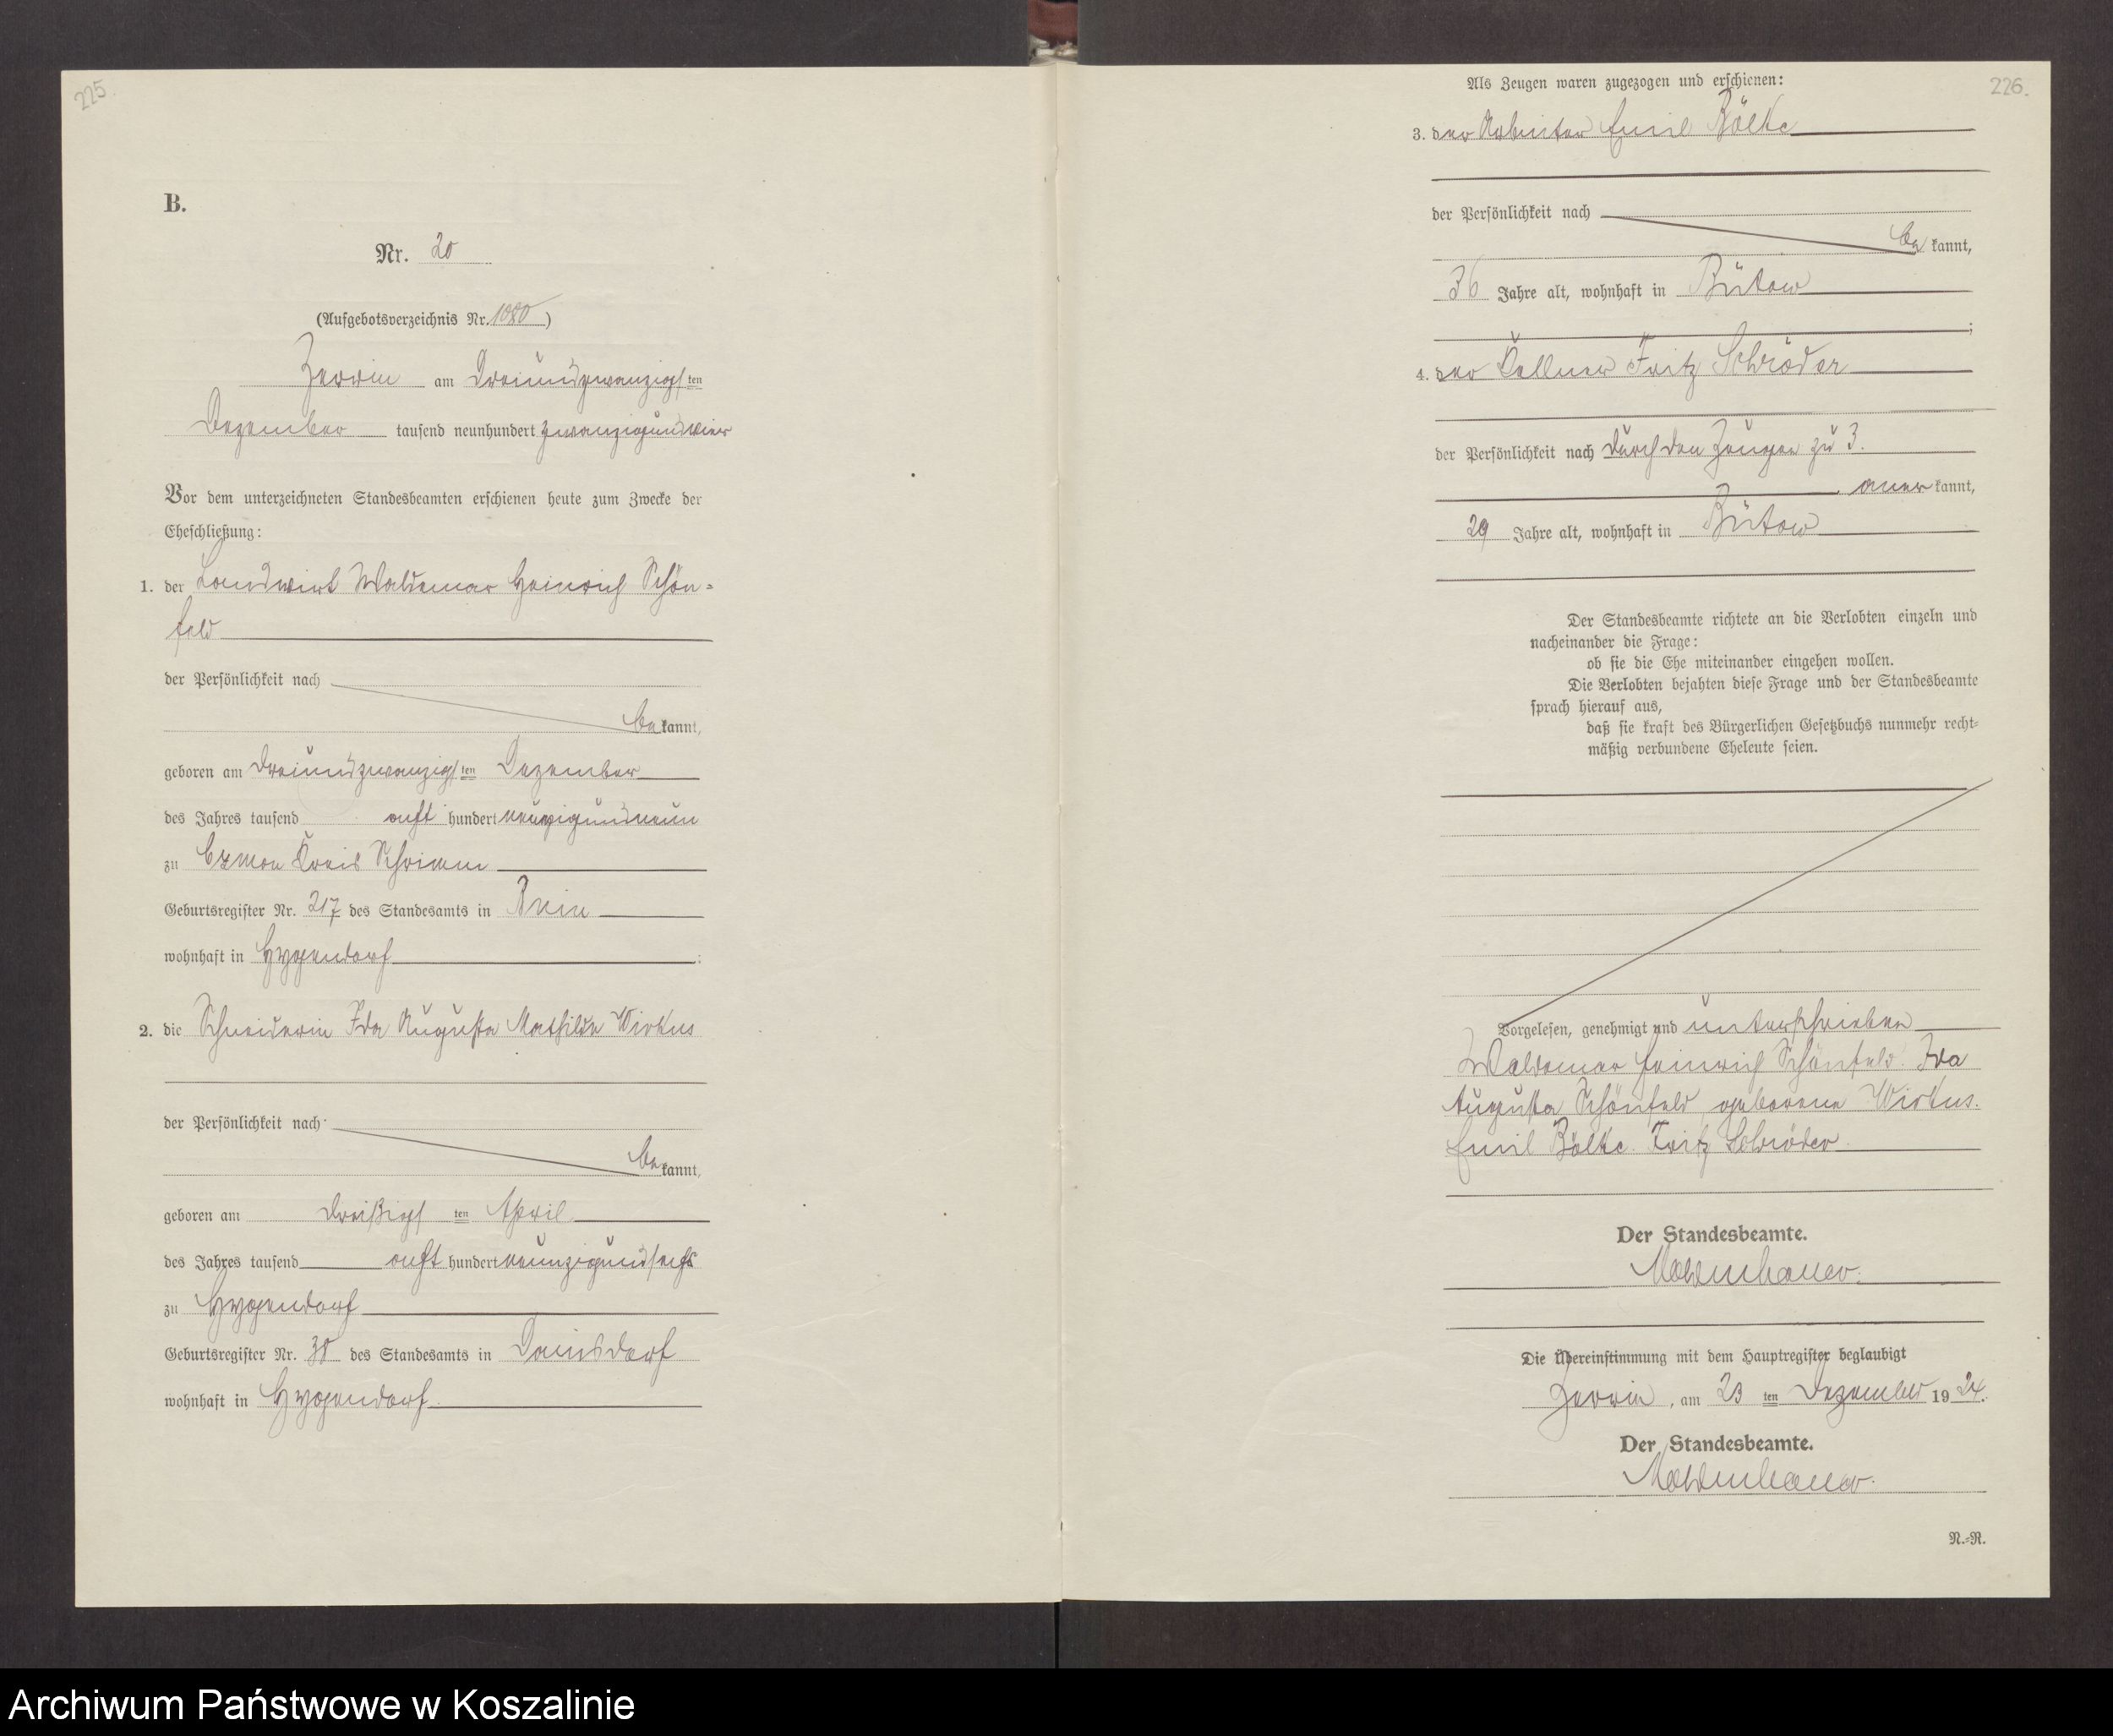 225.
B.
Nr. 20
(Aufgebotsverzeichnis Nr. )
Zerrin am Dreiundzwanzigsten
Dezember tausend neunhundert zwanzigundvier
Vor dem unterzeichneten Standesbeamten erschienen heute zum Zwecke der
Eheschließung:
1. der Landwirt Waldemar Heinrich Schön=
feld
der Persönlichkeit nach
bekannt,
geboren am Dreiundzwanzigsten Dezember
des Jahres tausend acht hundert neunzigundneun
zu Czmon Kreis Schrimm
Geburtsregister Nr. 217 des Standesamts in Bnin
wohnhaft in Hygendorf;
2. die Schneiderin Ida Auguste Mathilde Wirkus
der Persönlichkeit nach
bekannt,
geboren am dreißigsten April
des Jahres tausend acht hundert neunzigundsechs
zu Hygendorf
Geburtsregister Nr. 38 des Standesamts in Damsdorf
wohnhaft in Hygendorf
226.
Als Zeugen waren zugezogen und erschienen:
3. der Arbeiter Emil Bölke
der Persönlichkeit nach
bekannt,
36 Jahre alt, wohnhaft in Bütow
;
4. der Kellner Fritz Schröder
der Persönlichkeit nach durch den Zeugen zu 3.
anerkannt,
29 Jahre alt, wohnhaft in Bütow
Der Standesbeamte richtete an die Verlobten einzeln und
nacheinander die Frage:
ob sie die Ehe miteinander eingehen wollen.
Die Verlobten bejahten diese Frage und der Standesbeamte
sprach hierauf aus,
daß sie kraft des Bürgerlichen Gesetzbuchs nunmehr recht=
mäßig verbundene Eheleute seien.
Vorgelesen, genehmigt und unterschrieben
Waldemar Heinrich Schönfeld. Ida
Auguste Schönfeld geborene Wirkus.
Emil Bölke. Fritz Schröder
Der Standesbeamte.
Moldenhauer.
Die Übereinstimmung mit dem Hauptregister beglaubigt
Zerrin, am 23ten Dezember 1924.
Der Standesbeamte.
Moldenhauer.
N.=R.
Archiwum Państwowe w Koszalinie